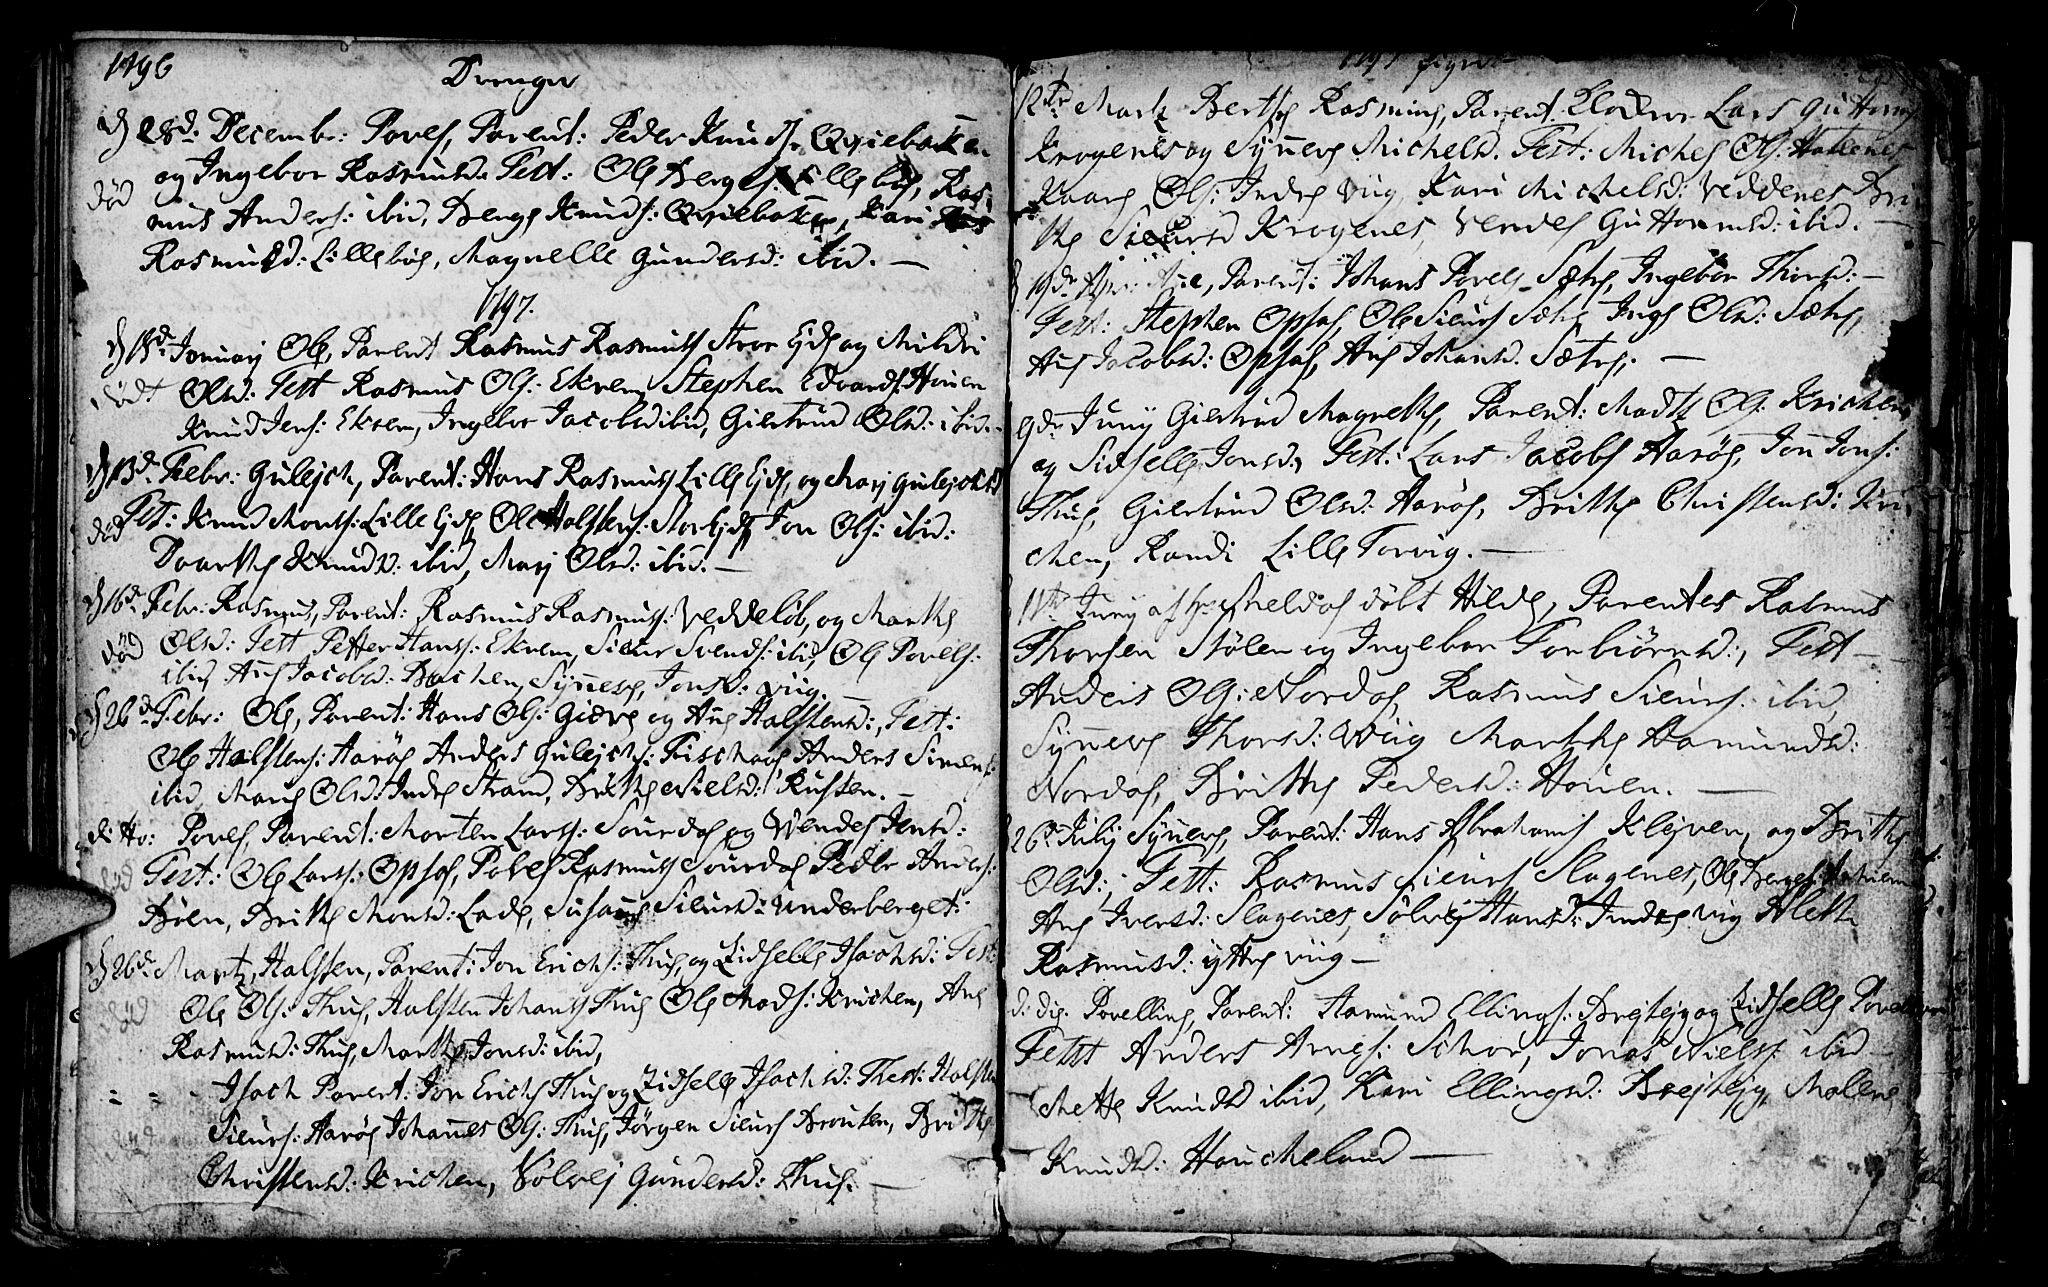 1796 Drenge
d 28d. Decembr: Povel, Parent: Peder Knuds. Qviebaken
og Ingebor Rasmusd. Test: Ole Berges: Lillebøe, Ras
død
mus Anders: ibid, Benge Knuds: Qviebaken, Kari
Rasmusd: Lillebøe, Magnelle Gundersd: ibid. —
1797.
d Januarj Ole, Parent Rasmus Rasmuss Stor Ejde og Mildri
Olsd: Test Rasmus Ols: Ekrem, Stephen Edvards: Houen
Knud Jens: Ekrem, Ingebor Jacobsd ibid, Giertrud Olsd: ibid. -
d 13d. Febr: Gulejch, Parent: Hans Rasmuss Lille Ejde, og Marj Gulejchsd
død Test: Knud Mons: Lille Ejde Ole Halstens: Stor Ejde Jon Ols: ibid:
Daarthe Knudsd: ibid, Marj Olsd: ibid. —
d 16d. Febr: Rasmus, Parent: Rasmus Rasmuss: Veddeløb, og Marthe
død Olsd: Test Petter Hanss: Ekrem, Siur Svends: ibid, Ole Povels:
ibid, Ane Jacobsd: Bachen, Synneve Jonsd: Viig. —
d 26d. Febr: Ole, Parent: Hans Ols: Giere og Ane Halstensd:, Test:
Ole Halstens: Harøe Anders Gulejchs: Fischaae Anders Simens:
ibid, Maris Olsd: Indre Strand, Brithe Nielsd: Rusten. —
d: Ho: Povel, Parent: Morten Larss: Sourdal og Vendel Jensd:
død Test: Ole Larss: Opsal, Povel Rasmuss Sourdal Peder Anders:
Bøen, Brithe Monsd: Lade, Susanne Siursd: Underberget:
d 26d. Martz, Halsten, Parent: Jon Erichs: Thue, og Zidselle Isachsd: Test:
død Ole Ols: Thue, Halsten Johans Thue Ole Mads: Krichen, Ane
Rasmusd: Thue, Marthe Jonsd: ibid,
= = - Isach Parent: Jon Erichs Thue og Zidselle Isachsd: Thest: Halsten
død Siurs: Harøe Johannes Ols: Thue, Jørgen Siurs Brouken, Brithe
Christensd: Krichen, Sølvej Gundersd: Thue. —
1797 Pger
12te Martz Berthe Rasmine, Parent. Klocker Lars Guttorms
Krogenes og Synneve Michelsd. Test: Michel Ols: Hattenes
Kaare Ols: Indre Viig, Kari Michelsd: Veddenes Bri
the Siursd Krogenes, Vendel Guttormsd: ibid. —
19de Ane, Parent: Johans Povels Sætre, Ingebor Thorsd: —
Test: Stephen Opsal, Ole Siurs Sætre Inge Olsd: Sætre,
Ane Jacobsd: Opsal, Ane Johansd. Sætre. —
9de Junij Giertrud Magrethe, Parent: Madtz Ols: Krichen,
og Sidselle Jonsd, Test: Lars Jacobs Harøe, Jon Jons:
Thue, Giertrud Olsd: Harøe, Brithe Christensd: Kri
chen, Randi Lille Torvig. —
11te Junij af Hr: Meldal døbt Hilde, Parentes Rasmus
Thorsen Stølen og Ingebor Torbiørnsd:, Test —
Anders Ols: Nordal, Rasmus Siurs: ibid,
Synneve Thorsd: Viig Marthe Aamundsd:
Nordal, Brithe Pedersd: Houen. —
26de Julij Synneve, Parent: Hans Abrahams Klejven, og Brithe
Olsd:, Test: Rasmus Siurs Slagenes, Ole Berges:
Ane Iversd: Slagenes, Sølvej Hansd: Indre Viig Aleth
Rasmusd: Yttre Viig —
d: die Povelline, Parent: Aamund Ellings: Brejteje og Zidselle
Test Anders Arnes: Schor, Jonas Niels: ibid —
Mette Knudsd ibid, Kari Ellingsd: Brejteje, Malene
Knudsd: Houcheland —